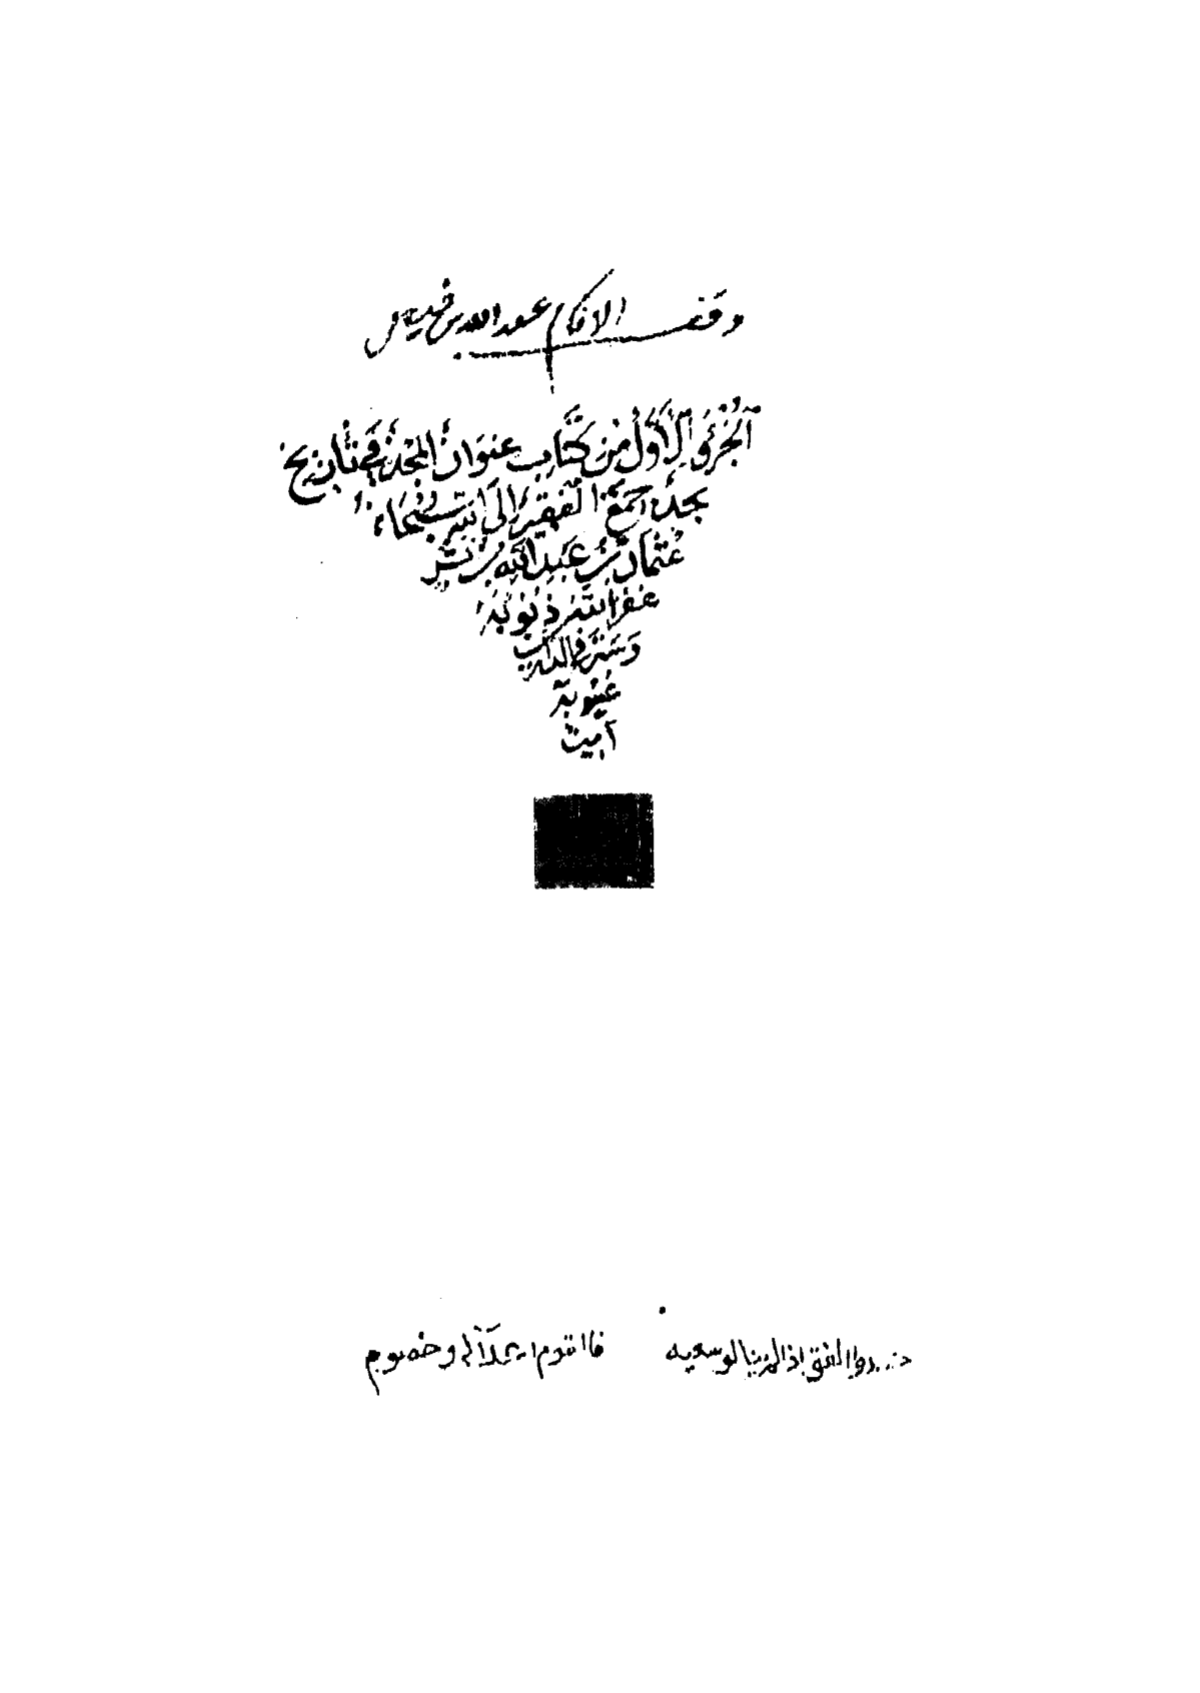 وقف الامام عبد الله بن فيصل
الجزؤ الاول من كتاب عنوان المجد في تاريخ
نجد جمع الفقير الى الله سبحانه
عثمان بن عبد الله بن بشر
غفر الله ذنوبه
وستر في الدارين
عيوبه
آمين
حسدوا الفتى إذ لم ينالوا سعيه فا القوم اعداء له وخصوم